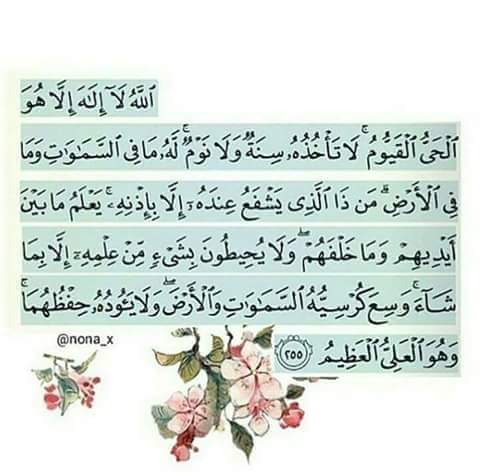 ٱللَّهُ لَآ إِلَـٰهَ إِلَّا هُوَ
ٱلْحَىُّ ٱلْقَيُّومُ ۚ لَا تَأْخُذُهُۥ سِنَةٌ وَلَا نَوْمٌ ۚ لَّهُۥ مَا فِى ٱلسَّمَـٰوَٰتِ وَمَا
فِى ٱلْأَرْضِ ۗ مَن ذَا ٱلَّذِى يَشْفَعُ عِندَهُۥٓ إِلَّا بِإِذْنِهِۦ ۚ يَعْلَمُ مَا بَيْنَ
أَيْدِيهِمْ وَمَا خَلْفَهُمْ ۖ وَلَا يُحِيطُونَ بِشَىْءٍ مِّنْ عِلْمِهِۦٓ إِلَّا بِمَا
شَآءَ ۚ وَسِعَ كُرْسِيُّهُ ٱلسَّمَـٰوَٰتِ وَٱلْأَرْضَ ۖ وَلَا يَـُٔودُهُۥ حِفْظُهُمَا ۚ
وَهُوَ ٱلْعَلِىُّ ٱلْعَظِيمُ ۝٢٥٥
@nona_x